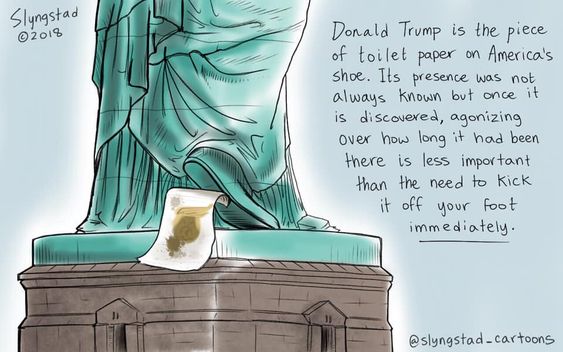 Slyngstad
©2018
Donald Trump is the piece
of toilet paper on America's
shoe. Its presence was not
always known but once it
is discovered, agonizing
over how long it had been
there is less important
than the need to kick
it off your foot
immediately.
@slyngstad_cartoons